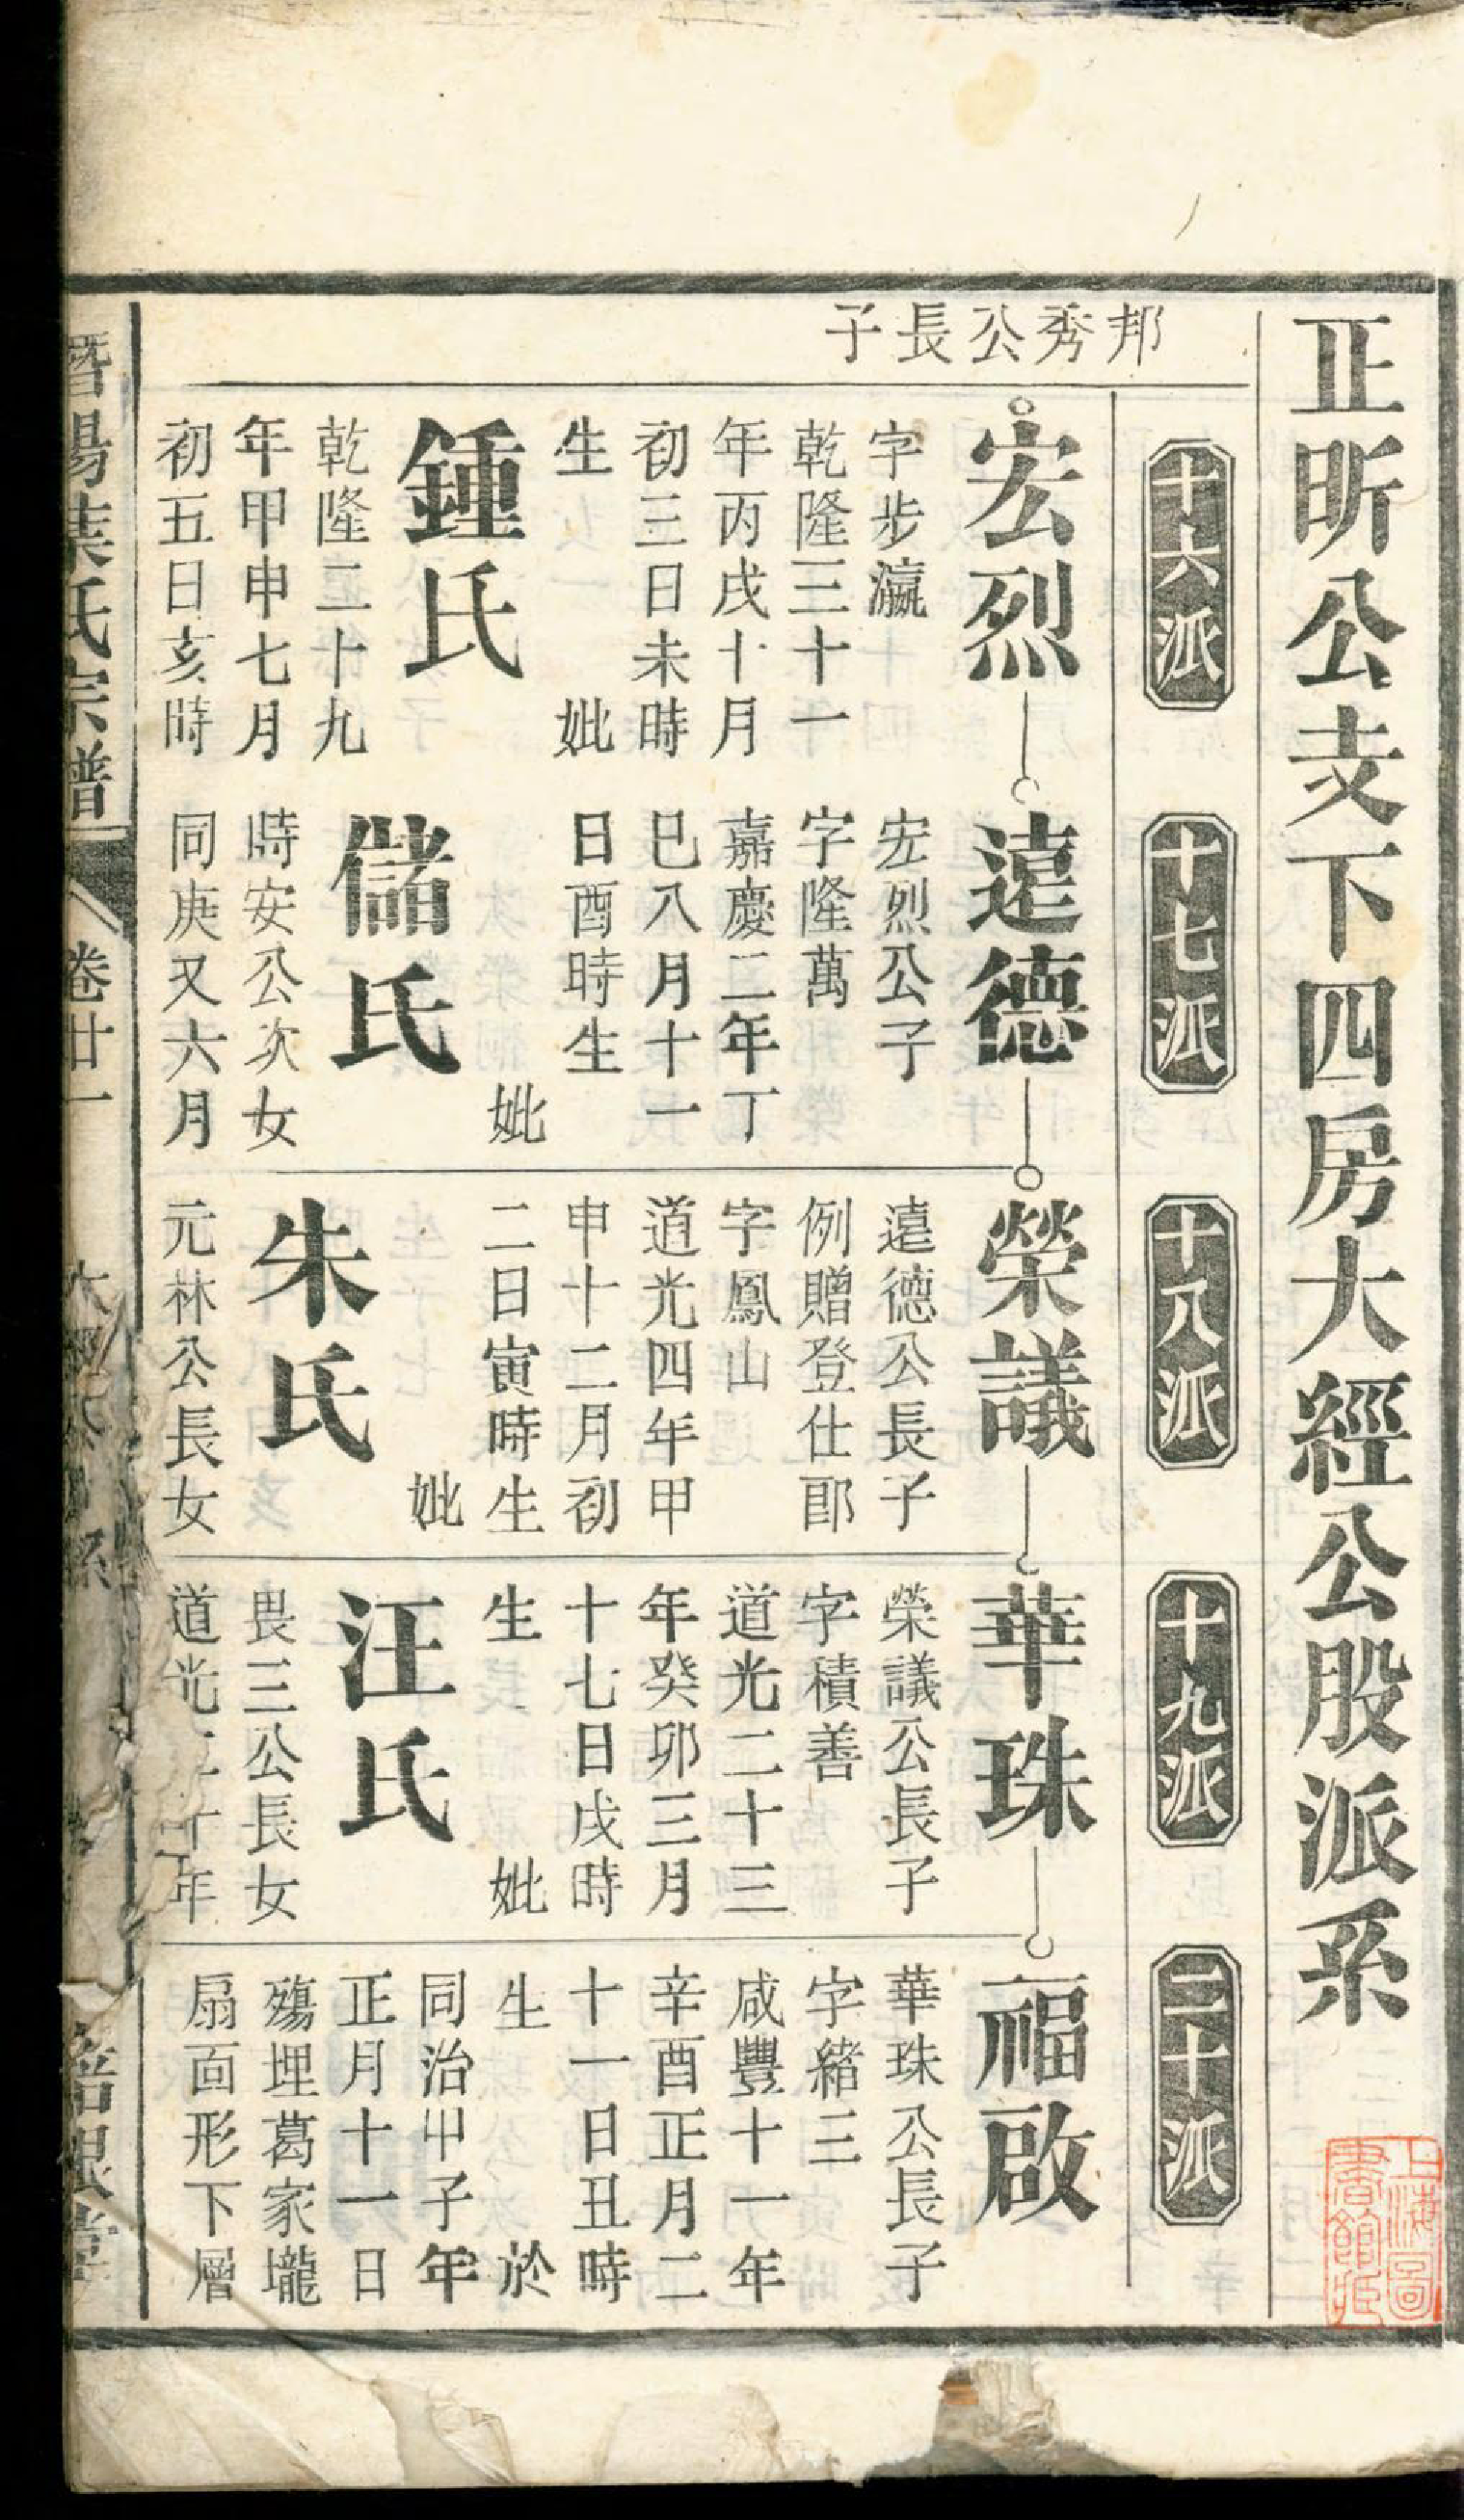 正昕公支下四房大經公股派系
十六派
十七派
十八派
十九派
二十派
邦秀公長子
宏烈
字步瀛
乾隆三十一
年丙戌十月
初三日未時
生 妣
鍾氏
乾隆二十九
年甲申七月
初五日亥時
遠德
宏烈公子
字隆萬
嘉慶二年丁
巳八月十一
日酉時生
妣
儲氏
時安公次女
同庚又六月
榮議
遠德公長子
例贈登仕郎
字鳳山
道光四年甲
申十二月初
二日寅時生
妣
朱氏
元林公長女
華珠
榮議公長子
字積善
道光二十三
年癸卯三月
十七日戌時
生 妣
汪氏
畏三公長女
道光二十年
福啟
華珠公長子
字緒三
咸豐十一年
辛酉正月二
十一日丑時
生 於
同治甲子年
正月十一日
殤埋葛家壠
扇面形下層
暨陽葉氏宗譜
卷廿一
上海圖書館藏